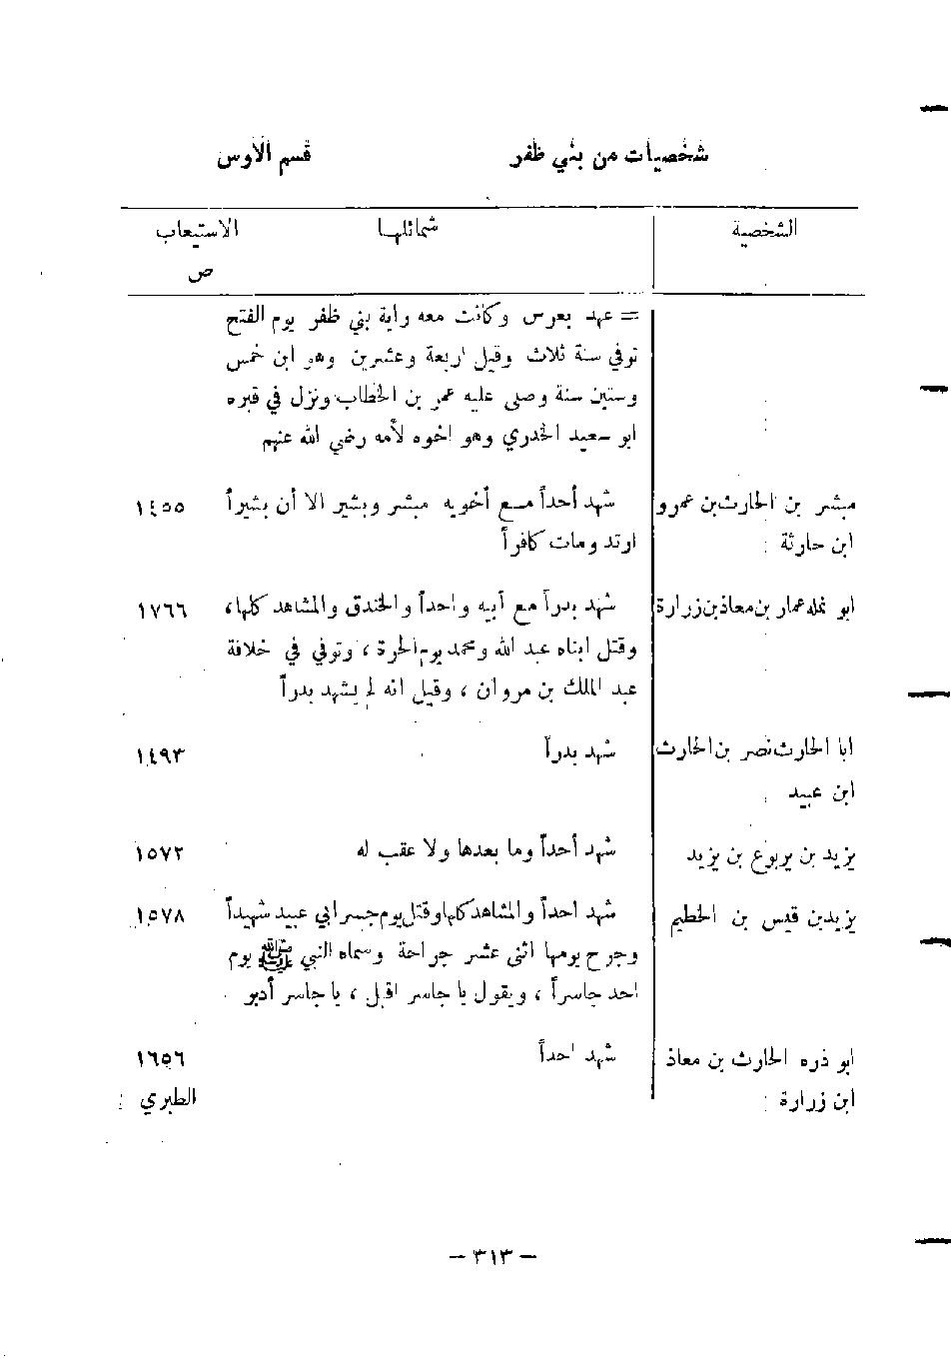 شخصيات من بني ظفر قسم الاوس
الشخصية شمائلها الاستيعاب
ص
= عهد بعرس وكانت معه راية بني ظفر يوم الفتح
توفي سنة ثلاث وقيل اربعة وعشرين وهو ابن خمس
وستين سنة وصلى عليه عمر بن الخطاب ونزل في قبره
ابو سعيد الخدري وهو اخوه لأمه رضي الله عنهم
مبشر بن الحارث بن عمرو شهد أحداً مع أخويه مبشر وبشير الا أن بشيراً ١٤٥٥
ابن حارثة : ارتد ومات كافراً
ابو نمله عمار بن معاذ بن زرارة شهد بدراً مع أبيه واحداً والخندق والمشاهد كلها، ١٧٦٦
وقتل ابناه عبد الله ومحمد يوم الحرة ، وتوفي في خلافة
عبد الملك بن مروان ، وقيل انه لم يشهد بدراً
ابا الحارث نصر بن الحارث شهد بدراً ١٤٩٣
ابن عبيد :
يزيد بن يربوع بن يزيد شهد أحداً وما بعدها ولا عقب له ١٥٧٢
يزيد بن قيس بن الخطيم شهد احداً والمشاهد كلها وقتل يوم جسر ابي عبيد شهيداً ١٥٧٨
وجرح يومها اثنى عشر جراحة وسماه النبي ﷺ يوم
احد جاسراً ، ويقول يا جاسر اقبل ، يا جاسر أدبو
ابو ذره الحارث بن معاذ شهد احداً ١٦٥٦
ابن زرارة : الطبري :
— ٣١٣ —